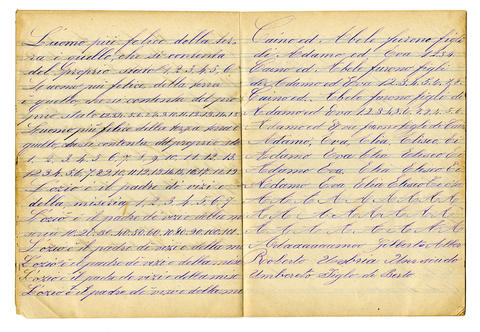 L'uomo più felice della ter
ra è quello, che si contenta
del proprio stato 1, 2, 3, 4, 5, 6
L'uomo più felice della terra
è quello, che si contenta del pro
prio stato 1 2 3 4 5 6 7 8 9 10 11 12 13 14 15
L'uomo più felice della terra è
quello, che si contenta del proprio
1, 2, 3, 4, 5, 6, 7, 8, 9, 10, 11, 12, 13
1 2 3 4 5 6 7 8 9 10 11 12 13 14 15 16 17 18 19
L'ozio è il padre di vizi e
della miseria 1, 2, 3, 4, 5, 6, 7
L'ozio è il padre di vizi e della mi
10 20 30 40 50 60 70 80 90 100
L'ozio è il padre di vizi e della m
L'ozio è il padre di vizi e della mi
L'ozio è il padre di vizi e della mis
L'ozio è il padre di vizi e della mi
Caino ed Abele furono figli
di Adamo ed Eva 1 2 3 4
Caino ed Abele furono figli
di Adamo ed Eva 1, 2, 3, 4, 5, 6, 7, 8
Caino ed Abele furono figli di
Adamo ed Eva 1, 2, 3, 4, 5, 6
Caino ed Abele furono figli di
Adamo ed Eva 1 2 3 4 5 6 7 8
Adamo, Eva, Elia, Eliseo
Adamo Eva Elia Eliseo
Adamo Eva, Elia, Eliseo
Adamo Eva Elia Eliseo
A A A A A A A A
A A A A A A A A
A A A A A A A
Gilberto
Roberto
Umberto figlo de Berto